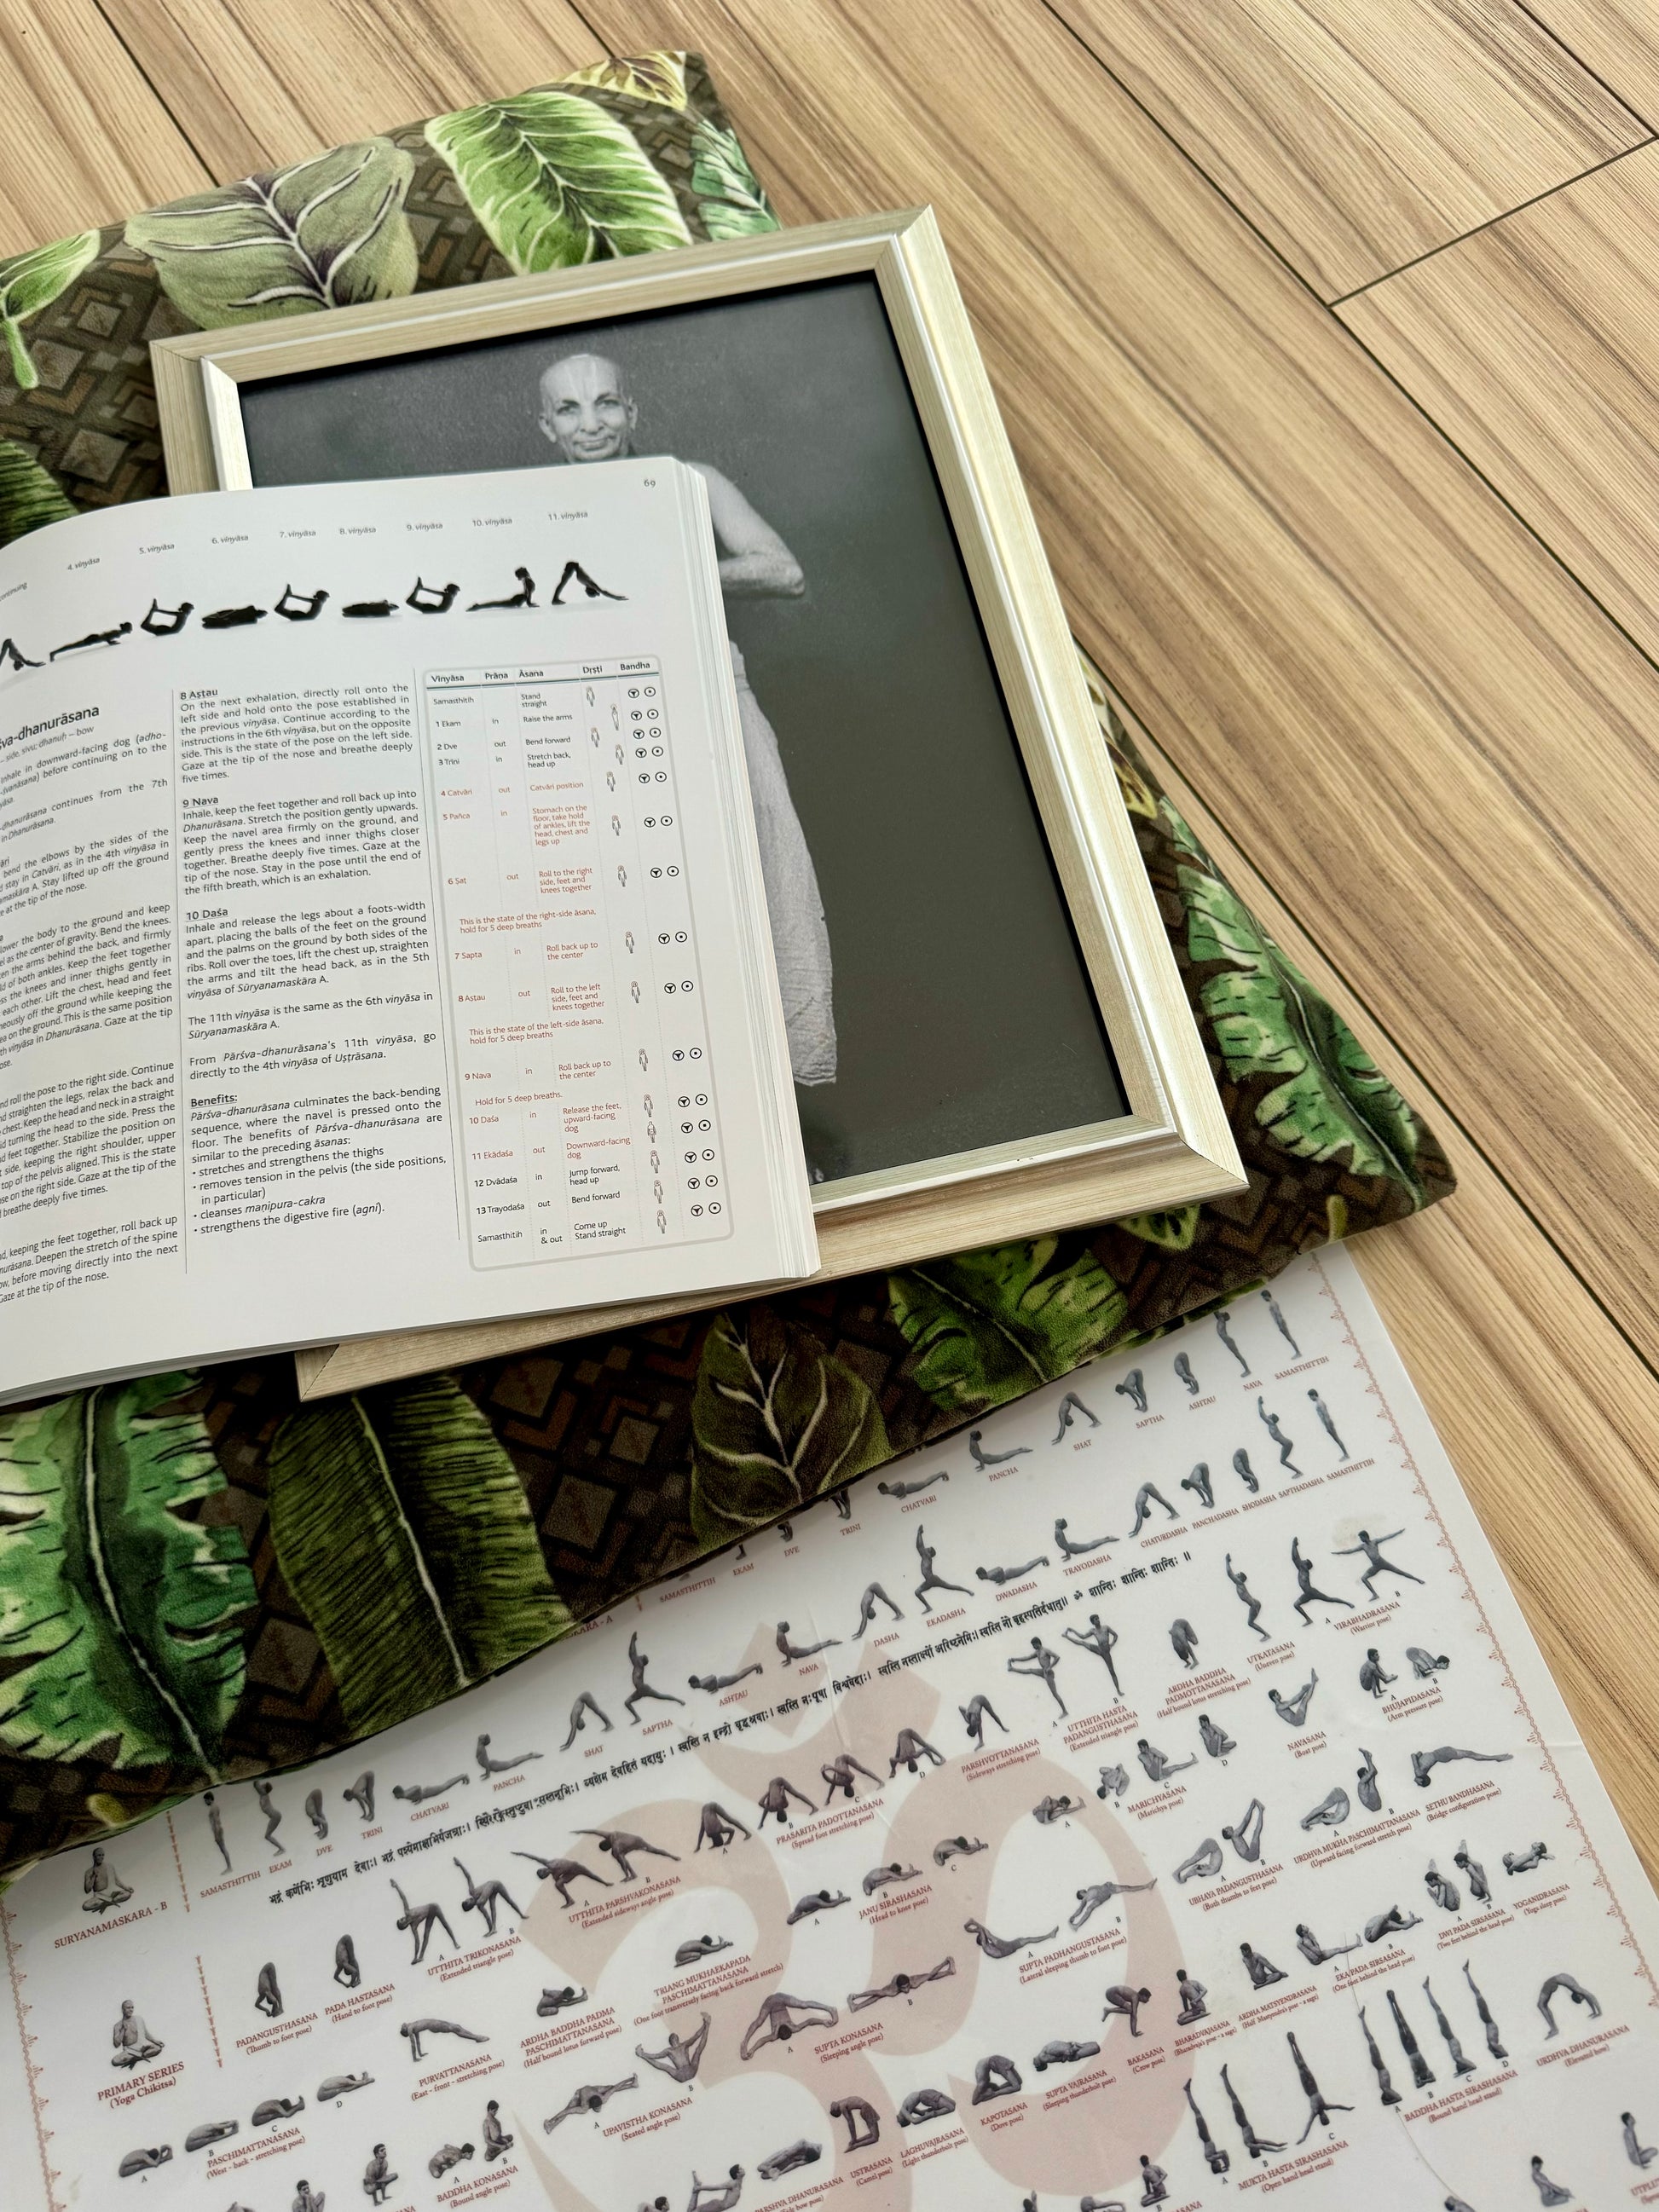 69
continuing
4. vinyāsa
5. vinyāsa
6. vinyāsa
7. vinyāsa
8. vinyāsa
9. vinyāsa
10. vinyāsa
11. vinyāsa
va-dhanurāsana
side, sivu; dhanuḥ – bow
nhale in downward-facing dog (adho-
vanāsana) before continuing on to the
dhanurāsana continues from the 7th
in Dhanurāsana.
bend the elbows by the sides of the
stay in Catvāri, as in the 4th vinyāsa in
maskāra A. Stay lifted up off the ground
e at the tip of the nose.
lower the body to the ground and keep
el as the center of gravity. Bend the knees.
en the arms behind the back, and firmly
ld of both ankles. Keep the feet together
ss the knees and inner thighs gently in
each other. Lift the chest, head and feet
neously off the ground while keeping the
ea on the ground. This is the same position
th vinyāsa in Dhanurāsana. Gaze at the tip
ose.
nd roll the pose to the right side. Continue
nd straighten the legs, relax the back and
chest. Keep the head and neck in a straight
id turning the head to the side. Press the
d feet together. Stabilize the position on
side, keeping the right shoulder, upper
top of the pelvis aligned. This is the state
se on the right side. Gaze at the tip of the
breathe deeply five times.
d, keeping the feet together, roll back up
nurāsana. Deepen the stretch of the spine
ow, before moving directly into the next
Gaze at the tip of the nose.
8 Aṣṭau
On the next exhalation, directly roll onto the
left side and hold onto the pose established in
the previous vinyāsa. Continue according to the
instructions in the 6th vinyāsa, but on the opposite
side. This is the state of the pose on the left side.
Gaze at the tip of the nose and breathe deeply
five times.
9 Nava
Inhale, keep the feet together and roll back up into
Dhanurāsana. Stretch the position gently upwards.
Keep the navel area firmly on the ground, and
gently press the knees and inner thighs closer
together. Breathe deeply five times. Gaze at the
tip of the nose. Stay in the pose until the end of
the fifth breath, which is an exhalation.
10 Daśa
Inhale and release the legs about a foots-width
apart, placing the balls of the feet on the ground
and the palms on the ground by both sides of the
ribs. Roll over the toes, lift the chest up, straighten
the arms and tilt the head back, as in the 5th
vinyāsa of Sūryanamaskāra A.
The 11th vinyāsa is the same as the 6th vinyāsa in
Sūryanamaskāra A.
From Pārśva-dhanurāsana's 11th vinyāsa, go
directly to the 4th vinyāsa of Uṣṭrāsana.
Benefits:
Pārśva-dhanurāsana culminates the back-bending
sequence, where the navel is pressed onto the
floor. The benefits of Pārśva-dhanurāsana are
similar to the preceding āsanas:
• stretches and strengthens the thighs
• removes tension in the pelvis (the side positions,
in particular)
• cleanses maṇipura-cakra
• strengthens the digestive fire (agni).
Vinyāsa Prāṇa Āsana Dṛṣṭi Bandha
Samasthitiḥ Stand
straight
1 Ekam in Raise the arms
2 Dve out Bend forward
3 Trīṇi in Stretch back,
head up
4 Catvāri out Catvāri position
5 Pañca in Stomach on the
floor, take hold
of ankles, lift the
head, chest and
legs up
6 Ṣaṭ out Roll to the right
side, feet and
knees together
This is the state of the right-side āsana,
hold for 5 deep breaths
7 Sapta in Roll back up to
the center
8 Aṣṭau out Roll to the left
side, feet and
knees together
This is the state of the left-side āsana,
hold for 5 deep breaths
9 Nava in Roll back up to
the center
Hold for 5 deep breaths.
10 Daśa in Release the feet,
upward-facing
dog
11 Ekādaśa out Downward-facing
dog
12 Dvādaśa in Jump forward,
head up
13 Trayodaśa out Bend forward
Samasthitiḥ in
& out Come up
Stand straight
SAMASTHITTIH EKAM DVE TRINI CHATVARI PANCHA SHAT SAPTHA ASHTAU NAVA SAMASTHITTIH
KARA - A
SAMASTHITTIH EKAM DVE TRINI CHATVARI PANCHA SHAT SAPTHA ASHTAU NAVA DASHA EKADASHA DWADASHA TRAYODASHA CHATURDASHA PANCHADASHA SHODASHA SAPTHADASHA SAMASTHITTIH
SURYANAMASKARA - B
भद्रं कर्णेभिः शृणुयाम देवाः। भद्रं पश्येमाक्षभिर्यजत्राः। स्थिरैरङ्गैस्तुष्टुवा ँसस्तनूभिः। व्यशेम देवहितं यदायुः। स्वस्ति न इन्द्रो वृद्धश्रवाः। स्वस्ति नः पूषा विश्ववेदाः। स्वस्ति नस्तार्क्ष्यो अरिष्टनेमिः। स्वस्ति नो बृहस्पतिर्दधातु॥ ॐ शान्तिः शान्तिः शान्तिः ॥
PRIMARY SERIES
(Yoga Chikitsa)
PADANGUSTHASANA
(Thumb to foot pose)
PADA HASTASANA
(Hand to foot pose)
UTTHITA TRIKONASANA
(Extended triangle pose)
UTTHITA PARSHVAKONASANA
(Extended sideways angle pose)
PRASARITA PADOTTANASANA
(Spread foot stretching pose)
PARSHVOTTANASANA
(Sideways stretching pose)
UTTHITA HASTA
PADANGUSTHASANA
(Extended triangle pose)
ARDHA BADDHA
PADMOTTANASANA
(Half bound lotus stretching pose)
UTKATASANA
(Uneven pose)
VIRABHADRASANA
(Warrior pose)
PASCHIMATTANASANA
(West - back - stretching pose)
PURVATTANASANA
(East - front - stretching pose)
ARDHA BADDHA PADMA
PASCHIMATTANASANA
(Half bound lotus forward pose)
TRIANG MUKHAEKAPADA
PASCHIMATTANASANA
(One foot transversely facing back forward stretch)
JANU SIRASHASANA
(Head to knee pose)
MARICHYASANA
(Marichya pose)
NAVASANA
(Boat pose)
BHUJAPIDASANA
(Arm pressure pose)
BADDHA KONASANA
(Bound angle pose)
UPAVISTHA KONASANA
(Seated angle pose)
SUPTA KONASANA
(Sleeping angle pose)
SUPTA PADHANGUSTASANA
(Lateral sleeping thumb to foot pose)
UBHAYA PADANGUSTHASANA
(Both thumbs to feet pose)
URDHVA MUKHA PASCHIMATTASANA
(Upward facing forward stretch pose)
SETHU BANDHASANA
(Bridge configuration pose)
PARSHVA DHANURASANA
(Side bow pose)
USTRASANA
(Camel pose)
LAGHUVAJRASANA
(Light thunderbolt pose)
KAPOTASANA
(Dove pose)
SUPTA VAJRASANA
(Sleeping thunderbolt pose)
BAKASANA
(Crow pose)
BHARADVAJASANA
ARDHA MATSYENDRASANA
EKA PADA SIRSASANA
(One foot behind the head pose)
DWI PADA SIRSASANA
(Two feet behind the head pose)
YOGANIDRASANA
(Yoga sleep pose)
MUKTA HASTA SIRASHASANA
(Open hand head stand)
BADDHA HASTA SIRASHASANA
(Bound hand head stand)
URDHVA DHANURASANA
(Elevated bow)